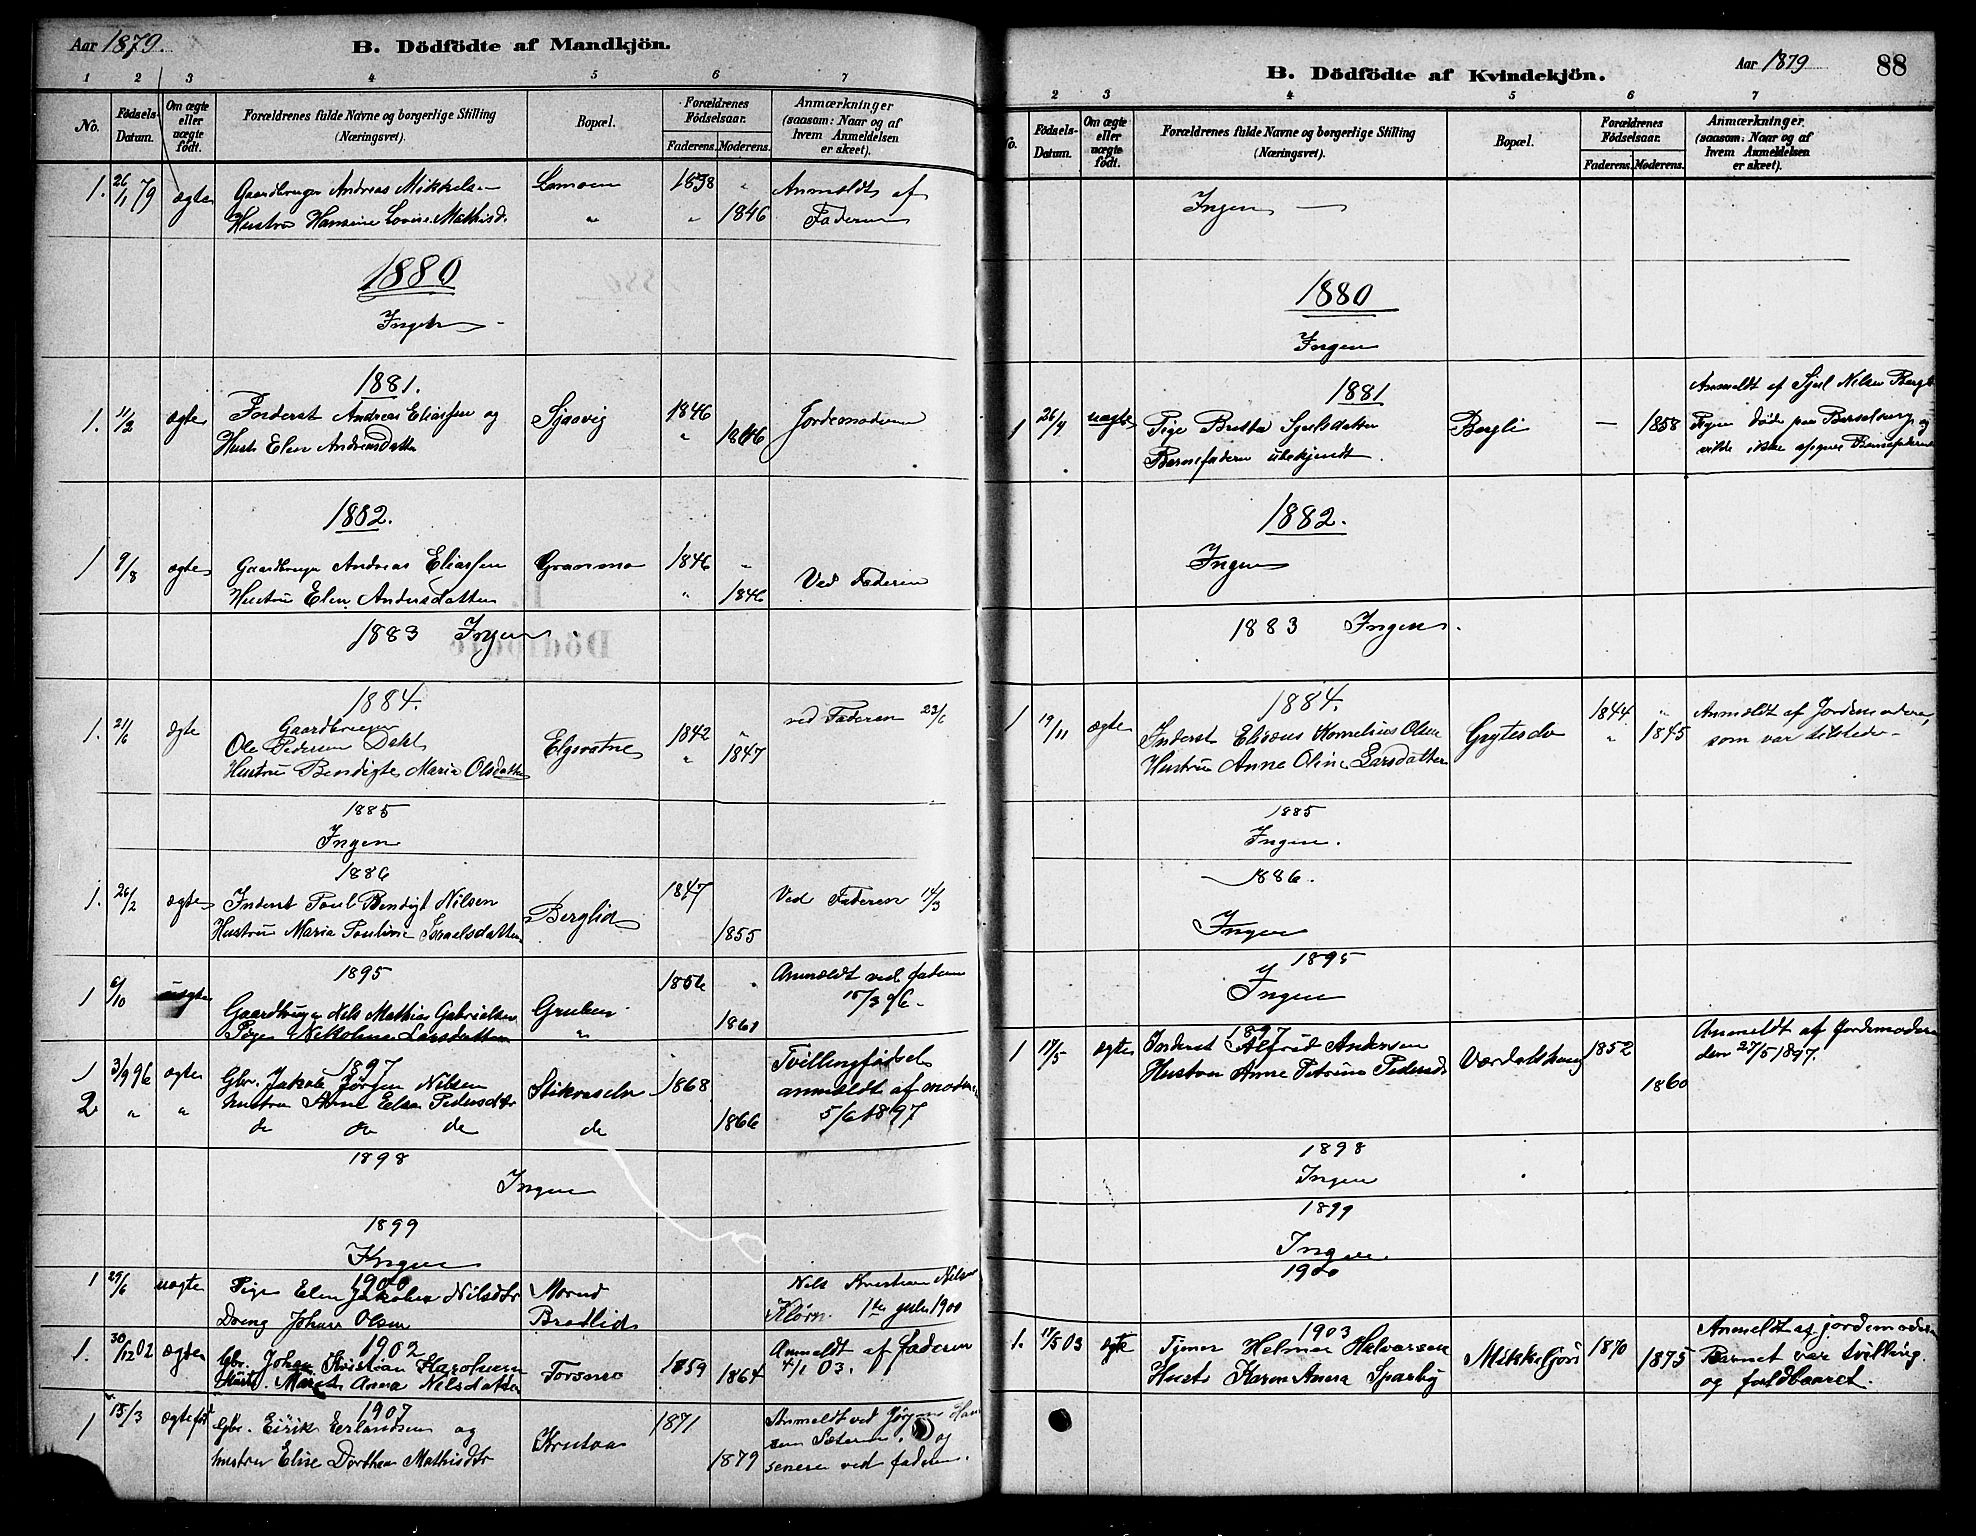 Aar 1879.
B. Dödfödte af Mandkjön.
1 2 3 4 5 6 7
No.
Födsels-Datum.
Om ægte eller uægte födt.
Forældrenes fulde Navne og borgerlige Stilling (Næringsvei).
Bopæl.
Forældrenes Födselsaar.
Faderens. Moderens.
Anmærkninger (saasom: Naar og af hvem Anmeldelsen er skeet).
1. 26/1 79 ægte Gaardbruger Andreas Mikkelsen 1838 " Anmeldt af
Hustru Hansine Lovise Mathisd. " " 1846 Faderen
1880
Ingen
1881.
1. 11/2 ægte Andreas Eliassen og 1846 Jordemoderen
Hust. Elen Andreasdatter " 1846
1882.
1 9/8 ægte Gaardbruger Andreas Eliassen 1846 " Ved Faderen
Hustru Elen Andersdatter " 1846
1883 Ingen
1884.
Gaardbruger
1. 21/6 ægte Ole Pedersen Dahl Elgvatne 1842 " ved Faderen
Hustru Bendigte Maria Olsdatter " 1847
1885
Ingen
1886
1. 26/2 ægte Inderst Poul Bendigt Nilsen Berglid 1847 Ved Faderen 14/3
Hustru Maria Pauline Israelsdatter 1855
1895
1 6/10 uægte Gaardbruger Nils Mathias Gabrielsen Gruben Anmeldt ved faderen
15/3 96
Pige Nikoline Larsdatter " 1861
1897
1 3/9 96 ægte Gbr. Jakob Jørgen Nilsen 1868 Tvillingfødsel
2 " " hustru Anne Elen Pedersdtr 1866 anmeldt af moderen
do do do do 5/6 1897
1898
Ingen
1899
Ingen
1900
1 29/6 uægte Pige Elen Jakobea Nilsdtr Nils Kristian Nilsen
Dreng Johan Olsen Bredlid 1900
1902
1. 30/12 02 ægte Gbr. Johan Kristian Karolius 1859 Anmeldt af faderen
Hust. Maret Anna Nilsdatter Forsmo 1864 4/1 03.
1907
1 15/3 ægtefød Gbr. Eirik Erlandsen og Krutaa 1871 Anmeldt ved Jørgen Han
hustru Elise Dorthea Mathisdtr 1879 sen og
senere ved faderen.
B. Dödfödte af Kvindekjön.
Aar 1879
88
2 3 4 5 6 7
No.
Födsels-Datum.
Om ægte eller uægte födt.
Forældrenes fulde Navne og borgerlige Stilling (Næringsvei).
Bopæl.
Forældrenes Födselsaar.
Faderens. Moderens.
Anmærkninger (saasom: Naar og af hvem Anmeldelsen er skeet).
Ingen
1880
Ingen
1881
Anmeldt af Sjul Nilsen Bergli
1 26/4 uægte Pige Sjulsdatter Bergli — 1858 Pigen døde paa Barselseng og
Barnefaderen ubekjendt vilde ikke opgive Barnefaderen
1882.
Ingen
1883 Ingen
1884.
1 19/11 ægte Inderst Eliseus Kornelius Olsen 1844 " Anmeldt af Jordemoderen,
Hustru Anne Oline Larsdatter " 1845 som var tilstede
1885
Ingen.
1886.
Ingen
1895
Ingen
1897
1 17/5 ægte Inderst Alfred Andersen 1852 Anmeldt af Jordemoderen
Hustru Anne Petrine Pedersd. 1860 den 27/5 1897.
1898
Ingen
1899
Ingen.
1900
1903
1. 17/5 03 ægte Tjener Helmer Halvorsen Mikkeljord 1870 Anmeldt af jordemoderen
Hust. Karen Anna Sparby 1875 Barnet var tvilling
og fuldbaaret.